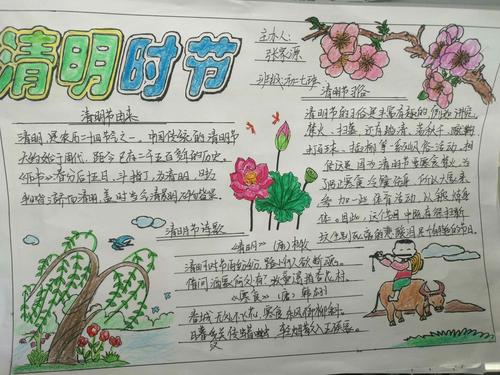 清明时节
主办人:
张家源
班级:初一七班
清明节由来
清明,是农历二十四节气之一,中国传统的清明节
大约始于周代,距今已有二千五百多年的历史。
《历书》:春分后十五日,斗指丁,为清明,时万
清明节诗歌
《清明》(唐)杜牧
清明时节雨纷纷,路上行人欲断魂。
借问酒家何处有?牧童遥指杏花村。
《寒食》(唐)韩翃
春城无处不飞花,寒食东风御柳斜。
日暮汉宫传蜡烛,轻烟散入五侯家。
清明节习俗
清明节的习俗是丰富有趣的,例如讲究
禁火、扫墓,还有踏青、荡秋千、蹴鞠、
打马球、插柳等一系列风俗活动。相
传这是因为清明节要寒食禁火,为
了防止寒食冷餐伤身,所以大家来
参加一些体育活动,以锻炼身
体。因此,这个节日中既有祭扫新